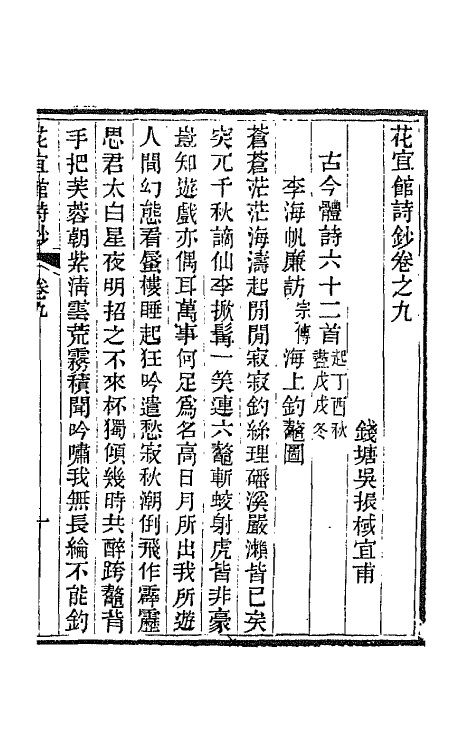 花宜館詩鈔卷之九
錢塘吳振棫宜甫
古今體詩六十二首起丁酉秋盡戊戌冬
李海帆廉訪宗傳海上釣鼇圖
蒼蒼茫茫海濤起閒閒寂寂釣絲理磻溪嚴瀨皆已矣
突兀千秋謫仙李掀髯一笑連六鼇斬蛟射虎皆非豪
豈知遊戲亦偶耳萬事何足爲名高日月所出我所遊
人間幻態看蜃樓睡起狂吟遣愁寂秋潮倒飛作霹靂
思君太白星夜明招之不來杯獨傾幾時共醉跨鼇背
手把芙蓉朝紫淸雲荒霧積聞吟嘯我無長綸不能釣
花宜館詩鈔 卷九 一